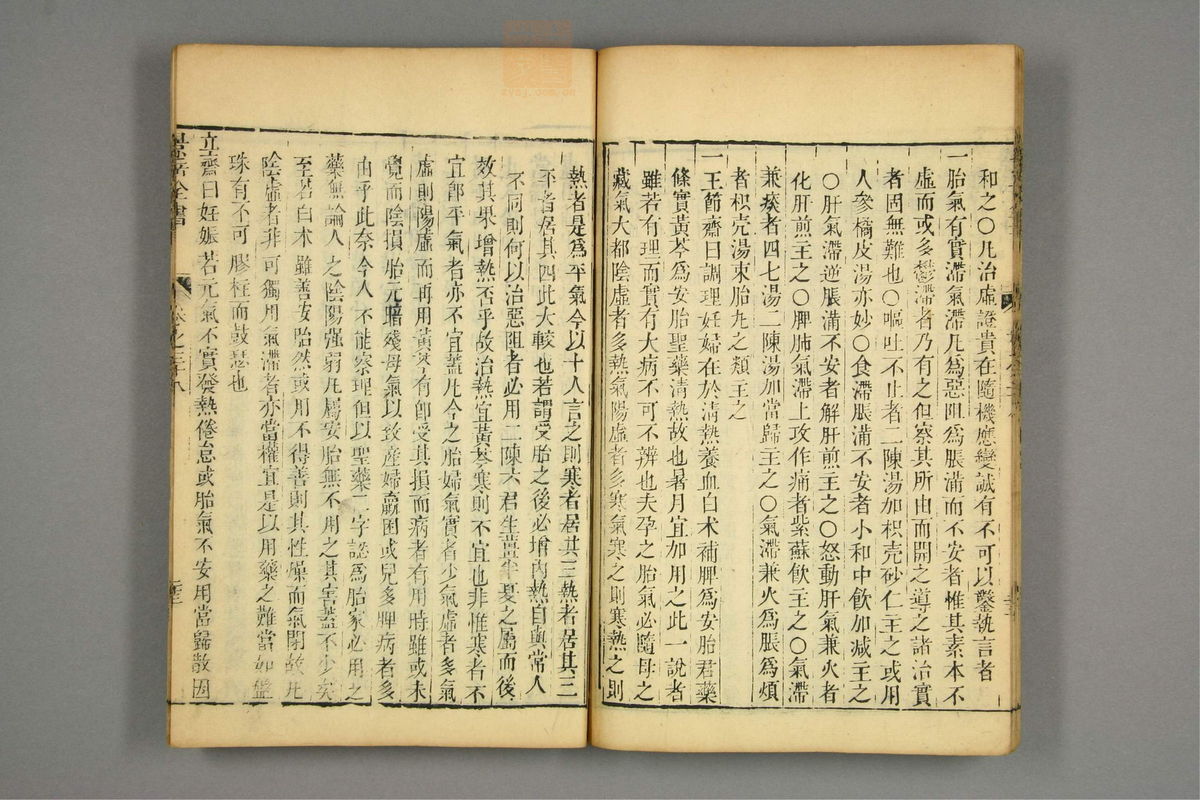 和之○凡治虛證貴在隨機應變誠有不可以鑿執言者
一胎氣有實滯氣滯凡爲惡阻爲脹滿而不安者惟其素本不
虛而或多鬱滯者乃有之但察其所由而開之導之諸治實
者固無難也○嘔吐不止者二陳湯加枳壳砂仁主之或用
人參橘皮湯亦妙○食滯脹滿不安者小和中飲加減主之
○肝氣滯逆脹滿不安者解肝煎主之○怒動肝氣兼火者
化肝煎主之○脾肺氣滯上攻作痛者紫蘇飲主之○氣滯
兼痰者四七湯二陳湯加當歸主之○氣滯兼火爲脹爲煩
者枳壳湯束胎丸之類主之
一王節齋曰調理妊婦在於淸熱養血白术補脾爲安胎君藥
條實黃芩爲安胎聖藥淸熱故也暑月宜加用之此一說者
雖若有理而實有大病不可不辨也夫孕之胎氣必隨母之
藏氣大都陰虛者多熱氣陽虛者多寒氣寒之則寒熱之則
熱者是爲平氣今以十人言之則寒者居其三熱者居其三
平者居其四此大較也若謂受胎之後必增內熱自與常人
不同則何以治惡阻者必用二陳六君生薑半夏之屬而後
效其果增熱否乎故治熱宜黃芩寒則不宜也非惟寒者不
宜卽平氣者亦不宜蓋凡今之胎婦氣實者少氣虛者多氣
虛則陽虛而再用黃芩有卽受其損而病者有用時雖或未
覺而陰損胎元暗殘母氣以致產婦羸困或兒多脾病者多
由乎此奈今人不能察理但以聖藥二字認爲胎家必用之
藥無論人之陰陽强弱凡屬安胎無不用之其害蓋不少矣
至若白术雖善安胎然或用不得善則其性燥而氣閉故凡
陰虛者非可獨用氣滯者亦當權宜是以用藥之難當如盤
珠有不可膠柱而鼓瑟也
立齋曰妊娠若元氣不實發熱倦怠或胎氣不安用當歸散因
景岳全書
卷之三十八